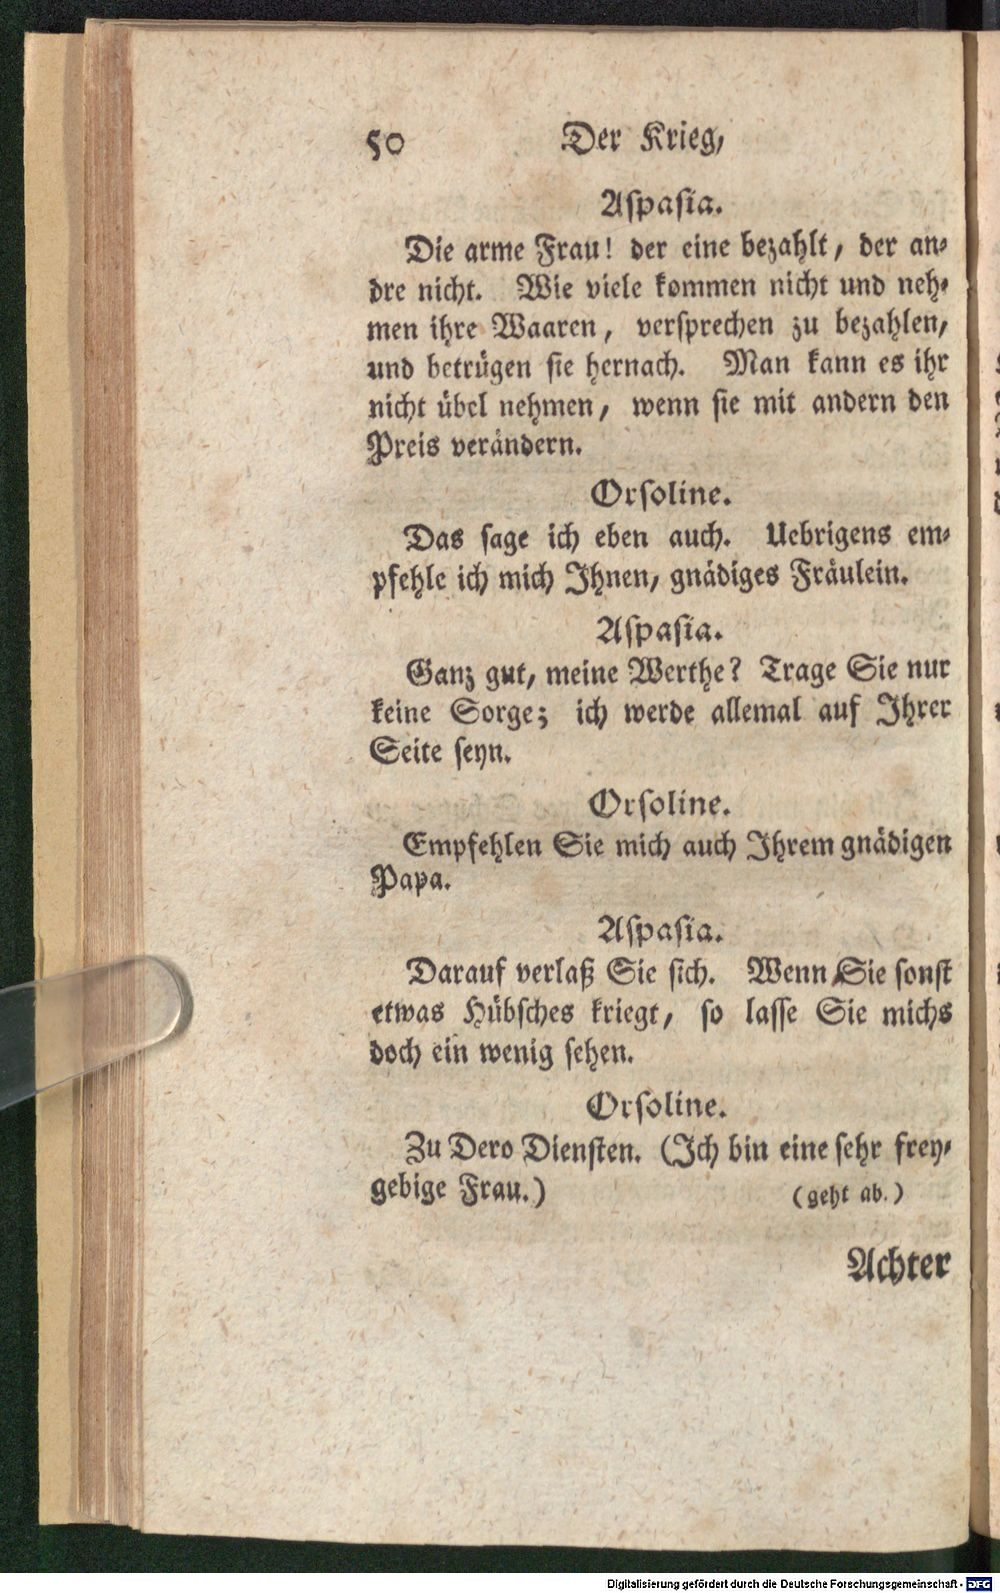 50 Der Krieg,
Aspasia.
Die arme Frau! der eine bezahlt, der an-
dre nicht. Wie viele kommen nicht und neh-
men ihre Waaren, versprechen zu bezahlen,
und betrügen sie hernach. Man kann es ihr
nicht übel nehmen, wenn sie mit andern den
Preis verändern.
Orsoline.
Das sage ich eben auch. Uebrigens em-
pfehle ich mich Ihnen, gnädiges Fräulein.
Aspasia.
Ganz gut, meine Werthe? Trage Sie nur
keine Sorge; ich werde allemal auf Ihrer
Seite seyn.
Orsoline.
Empfehlen Sie mich auch Ihrem gnädigen
Papa.
Aspasia.
Darauf verlaß Sie sich. Wenn Sie sonst
etwas Hübsches kriegt, so lasse Sie michs
doch ein wenig sehen.
Orsoline.
Zu Dero Diensten. (Ich bin eine sehr frey-
gebige Frau.) (geht ab.)
Achter
Digitalisierung gefördert durch die Deutsche Forschungsgemeinschaft - DFG